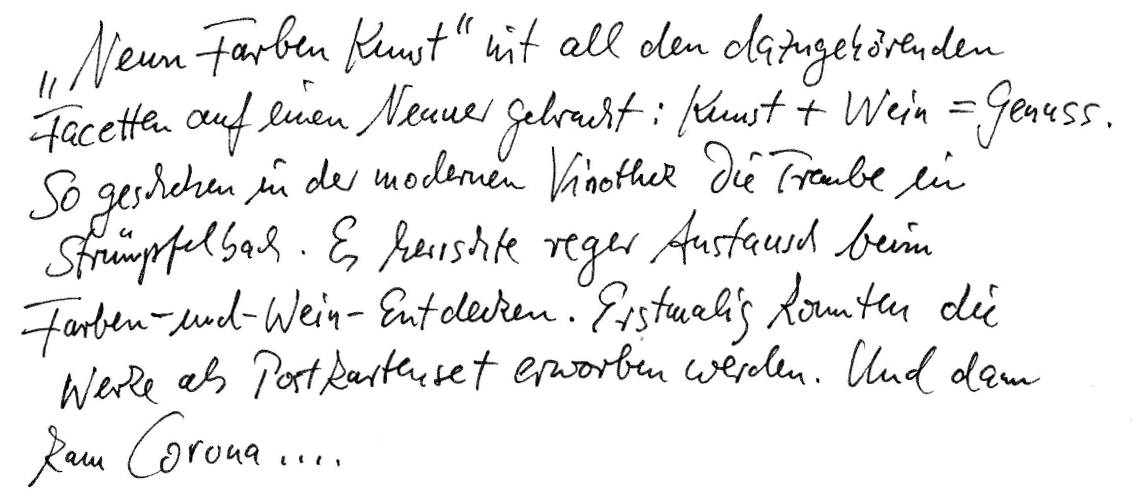 „Neun Farben Kunst“ mit all den dazugehörenden
Facetten auf einen Nenner gebracht: Kunst + Wein = Genuss.
So geschehen in der modernen Vinothek Die Traube in
Strümpfelbach. Es herrschte reger Austausch beim
Farben-und-Wein-Entdecken. Erstmalig konnten die
Werke als Postkartenset erworben werden. Und dann
kam Corona....